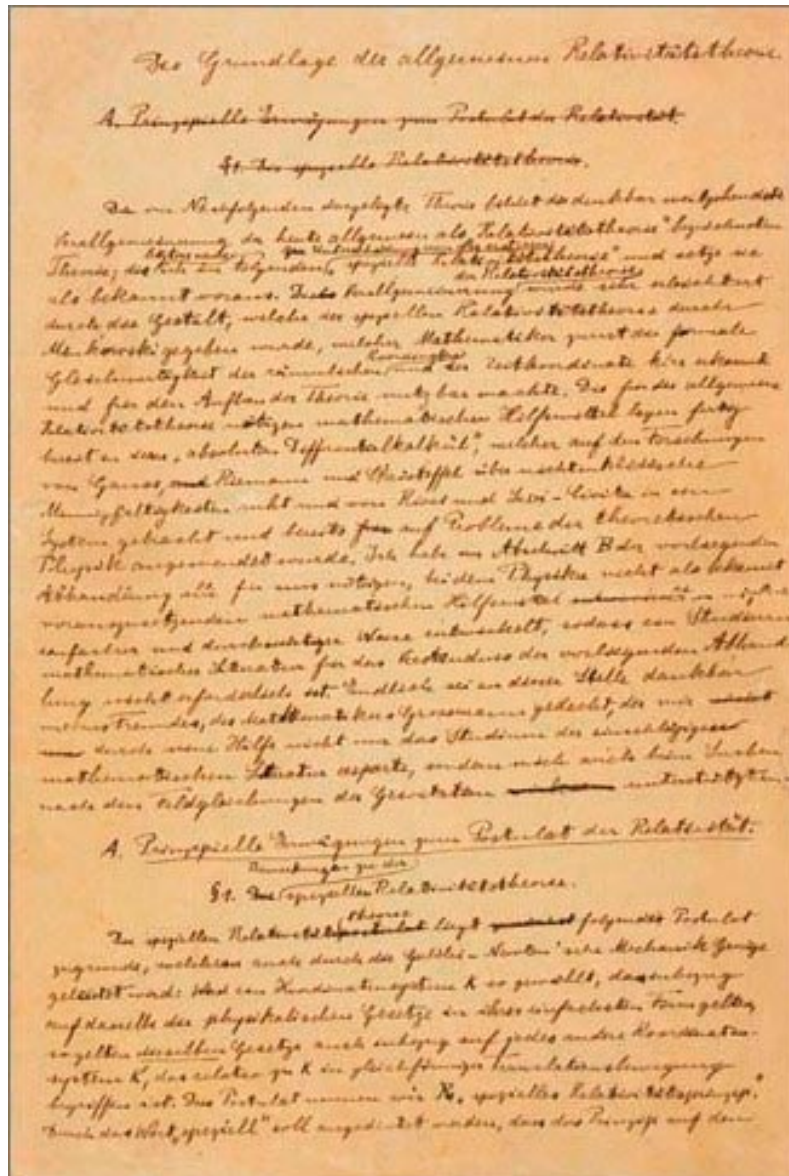 Die Grundlage der allgemeinen Relativitätstheorie.
A. Prinzipielle Erwägungen zum Postulat der Relativität.
§1. Die spezielle Relativitätstheorie.
Die im Nachfolgenden dargelegte Theorie bildet die denkbar weitgehendste
Verallgemeinerung der heute allgemein als „Relativitätstheorie" bezeichneten
Theorie; die im folgenden „spezielle Relativitätstheorie" und setze sie
der Relativitätstheorie
als bekannt voraus. Die Verallgemeinerung wurde sehr erleichtert
durch die Gestalt, welche der speziellen Relativitätstheorie durch
Minkowski gegeben wurde, welcher Mathematiker zuerst die formale
Gleichwertigkeit der räumlichen und der Zeitkoordinate klar erkannte
und für den Aufbau der Theorie nutzbar machte. Die für die allgemeine
Relativitätstheorie nötigen mathematischen Hilfsmittel lagen fertig
bereit in dem „absoluten Differentialkalkül", welcher auf den Forschungen
von Gauss, und Riemann und Christoffel über nichteuklidische
Mannigfaltigkeiten ruht und von Ricci und Levi-Civita in ein
System gebracht und bereits auf Probleme der theoretischen
Physik angewendet wurde. Ich habe im Abschnitt B der vorliegenden
Abhandlung alle für uns nötigen, bei dem Physiker nicht als bekannt
vorauszusetzenden mathematischen Hilfsmittel in
einfacher und durchsichtiger Weise entwickelt, sodass ein Studium
mathematischer Literatur für das Verständnis der vorliegenden Abhand-
lung nicht erforderlich ist. Endlich sei an dieser Stelle dankbar
meines Freundes, des Mathematikers Grossmann gedacht, der mir
durch seine Hilfe nicht nur das Studium der einschlägigen
mathematischen Literatur ersparte, sondern mich auch beim Suchen
nach den Feldgleichungen der Gravitation unterstützte.
A. Prinzipielle Erwägungen zum Postulat der Relativität.
Bemerkungen zu der
§1. Die speziellen Relativitätstheorie.
theorie
Der speziellen Relativitätspostulat liegt folgendes Postulat
zugrunde, welchem auch durch die Galilei-Newton'sche Mechanik Genüge
geleistet wird: Wird ein Koordinatensystem K so gewählt, dass inbezug
auf dasselbe die physikalischen Gesetze in ihrer einfachsten Form gelten,
so gelten dieselben Gesetze auch inbezug auf jedes andere Koordinaten-
system K', das relativ zu K in gleichförmiger Translationsbewegung
begriffen ist. Dies Postulat nennen wir „spezielles Relativitätsprinzip."
Durch das Wort „speziell" soll angedeutet werden, dass das Prinzip auf den